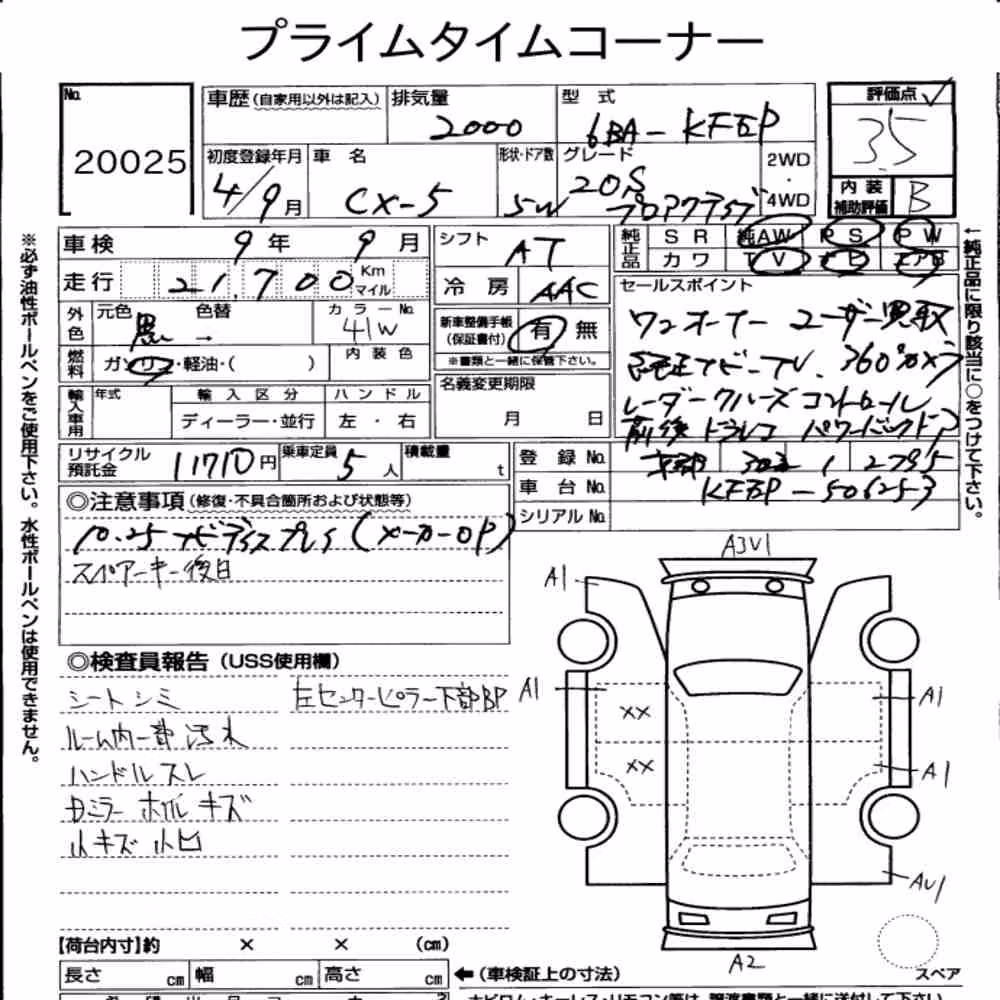 プライムタイムコーナー
No. 20025
車歴(自家用以外は記入) 排気量 2000 型式 6BA-KF5P
評価点 3.5
内装補助評価 B
初度登録年月 4/9月 車名 CX-5 形状・ドア数 5W グレード 20S プロアクティブ 2WD・4WD
車検 9年 9月
走行 21,700 Km マイル
シフト AT
冷房 AAC
純正品 SR 純AW PS PW
カワ TV ナビ エアB
外色 元色 黒 色替 → カラーNo. 41W
内装色
燃料 ガソリン・軽油・( )
新車整備手帳(保証書付) 有 無
※書類と一緒に保管下さい。
輸入車用 年式 輸入区分 ディーラー・並行 ハンドル 左・右
名義変更期限 月 日
セールスポイント
ワンオーナー ユーザー買取
純正ナビ-TV. 360°カメラ
レーダークルーズコントロール
前後ドラレコ パワーバックドア
リサイクル預託金 11710円 乗車定員 5人 積載量 t
登録No. 1 2795
車台No. KF5P-506253
シリアルNo.
◎注意事項(修復・不具合箇所および状態等)
10.25ナビディスプレイ(メーカーOP)
スペアーキー後日
◎検査員報告(USS使用欄)
シートシミ 左センターピラー下部BP
ルーム内一部汚れ
ハンドルスレ
Dミラー ホイル キズ
小キズ 小凹
A3V1
A1
A1
XX
XX
A1
A1
AU1
A2
スペア
【荷台内寸】約 × × (cm)
長さ cm 幅 cm 高さ cm
←(車検証上の寸法)
※必ず油性ボールペンをご使用下さい。水性ボールペンは使用できません。
←純正品に限り該当に○をつけて下さい。